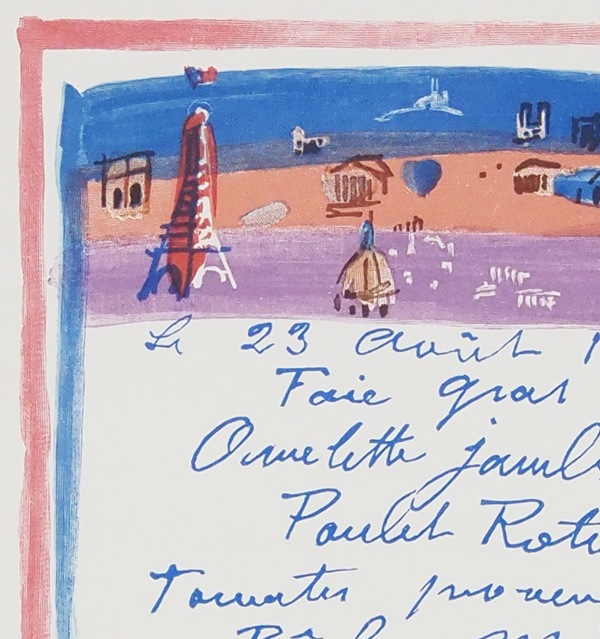 Le 23 Août 1
Foie gras
Omelette jamb
Poulet Roti
Tomates proven